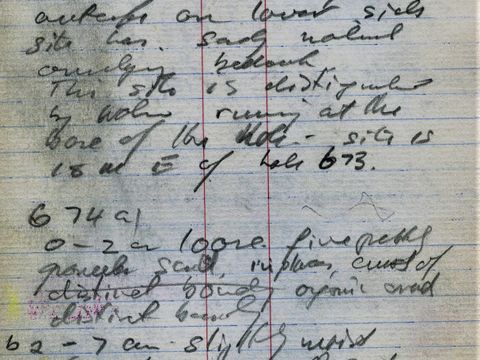 outcrop on lower side
site has. sandy
overlying bedrock.
This site is distinguished
by water running at the
base of the hole - site is
15 m E of hole 673.
674 a)
0 - 2 cm loose fine pebbly
granular sand, in places, crust of
distinct boundy organic
distinct boundy
b 2 - 7 cm slightly moist